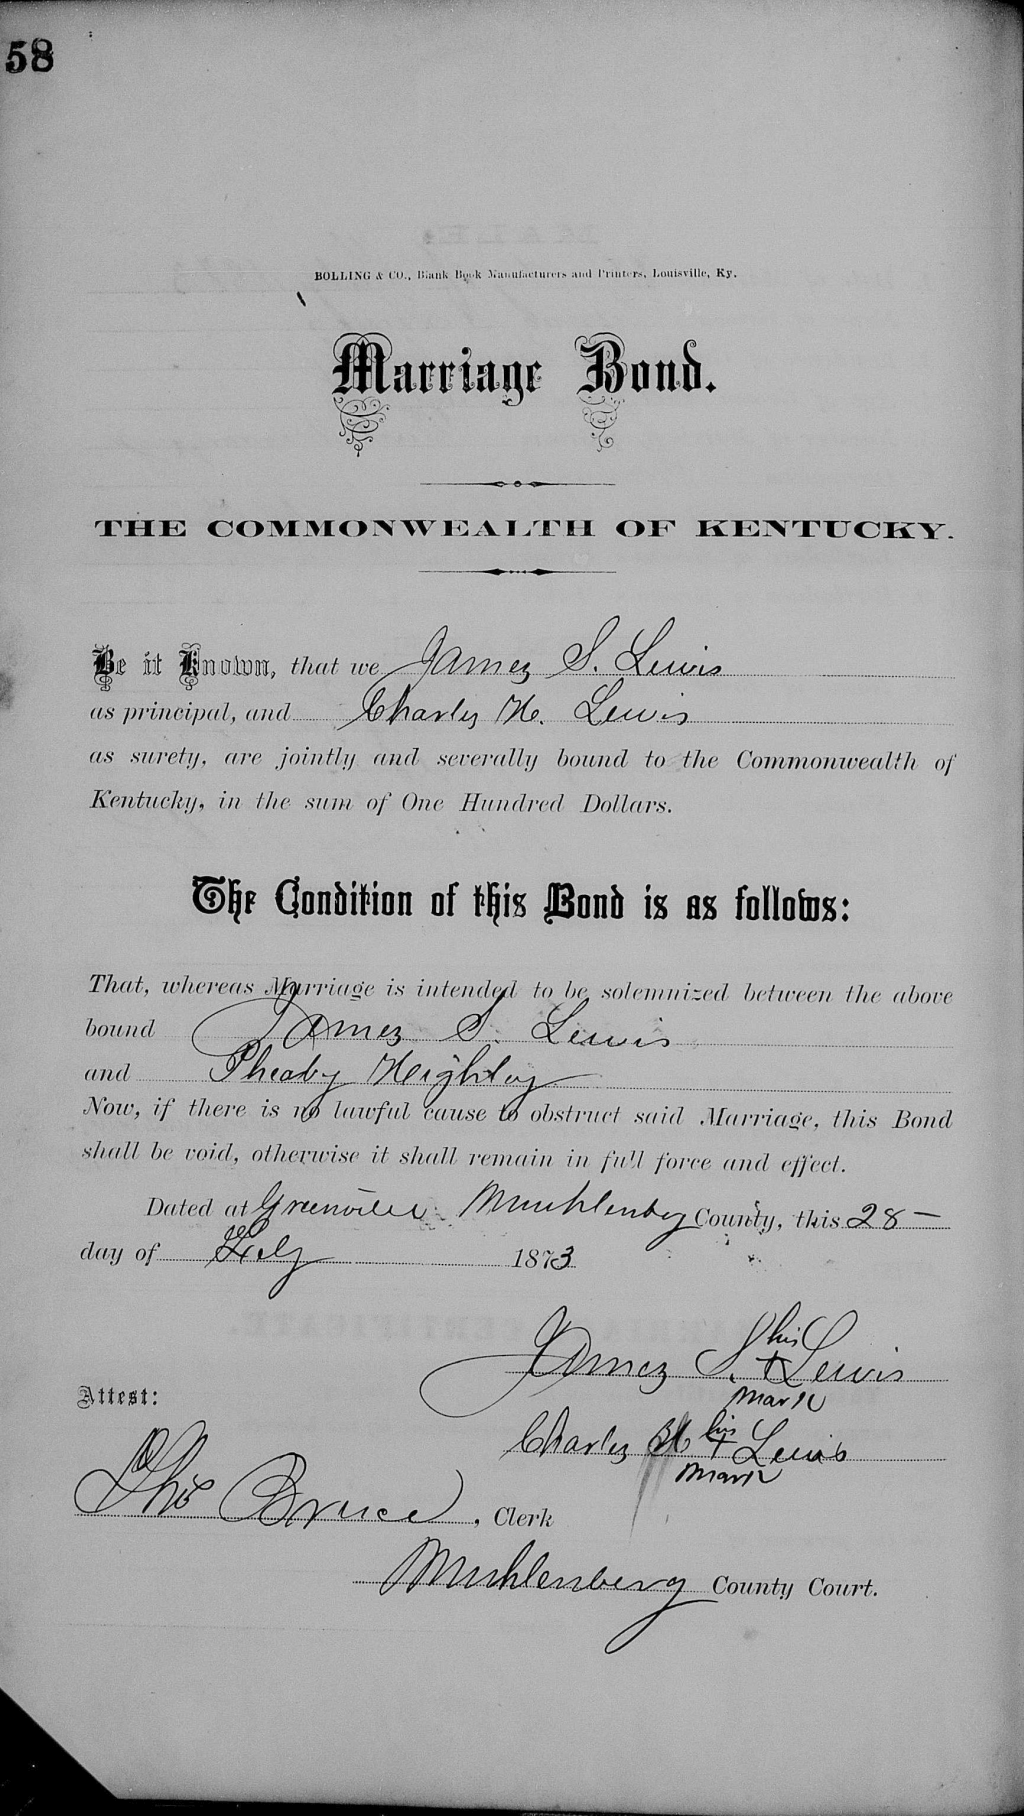 58
BOLLING & CO., Blank Book Manufacturers and Printers, Louisville, Ky.
Marriage Bond.
THE COMMONWEALTH OF KENTUCKY.
Be it Known, that we James S. Lewis
as principal, and Charles H. Lewis
as surety, are jointly and severally bound to the Commonwealth of
Kentucky, in the sum of One Hundred Dollars.
The Condition of this Bond is as follows:
That, whereas Marriage is intended to be solemnized between the above
bound James S. Lewis
and Pheaby Heightey
Now, if there is no lawful cause to obstruct said Marriage, this Bond
shall be void, otherwise it shall remain in full force and effect.
Dated at Greenville Muhlenberg County, this 28
day of 1873
James S. his + Lewis
mark
Attest:
Charles H his + Lewis
mark
Tho Bruce, Clerk
Muhlenberg County Court.